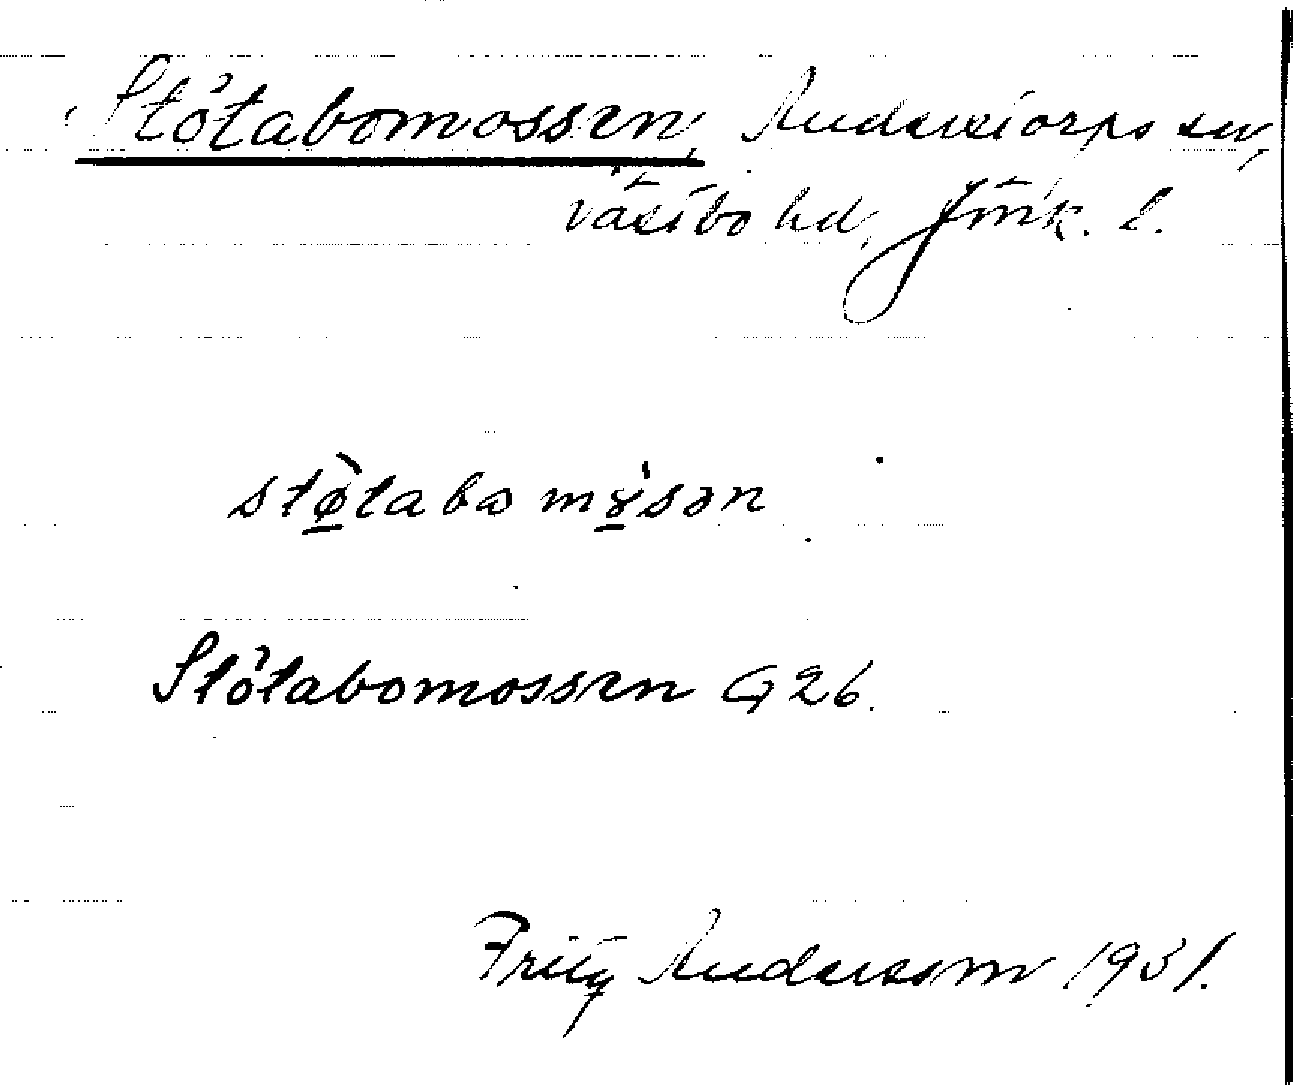 Stötabomossen, Anderstorps sn,
Västbo hd, Jönk. l.
stø̱̀tabɷ mɣ̱̀sən
Stötabomossen G 26.
Fritz Andersson 1931.